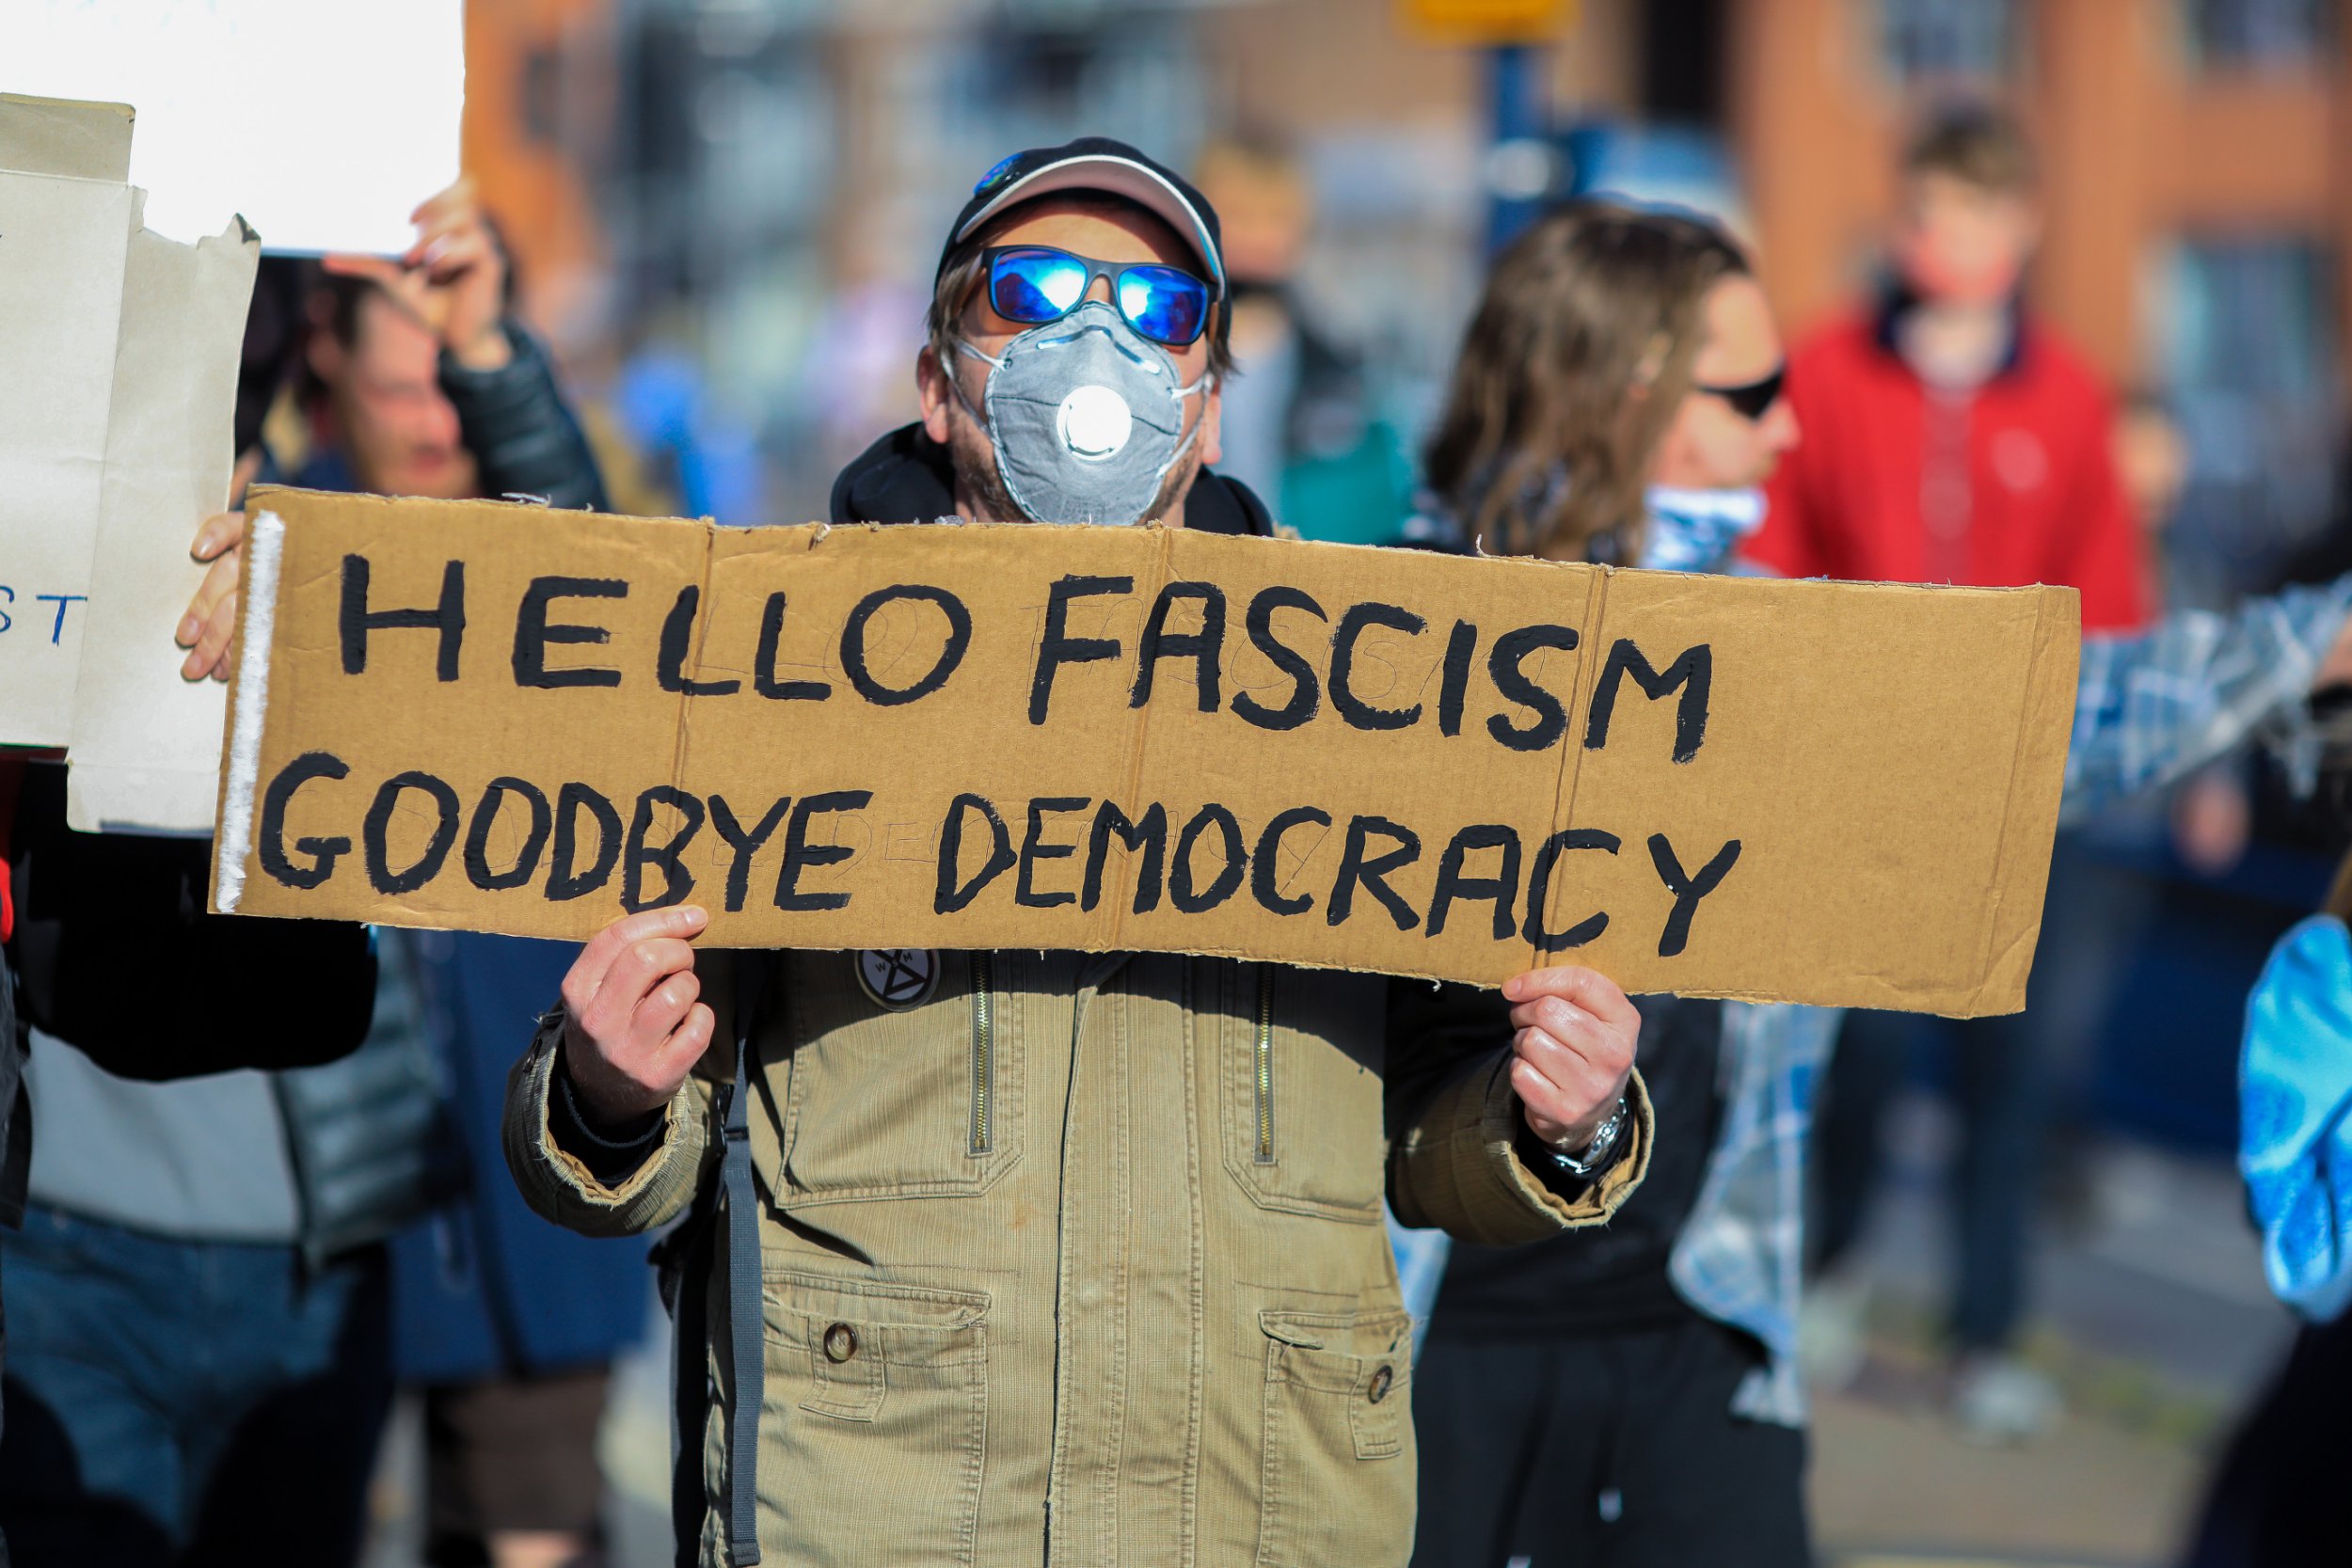 HELLO FASCISM
GOODBYE DEMOCRACY
ST
W M